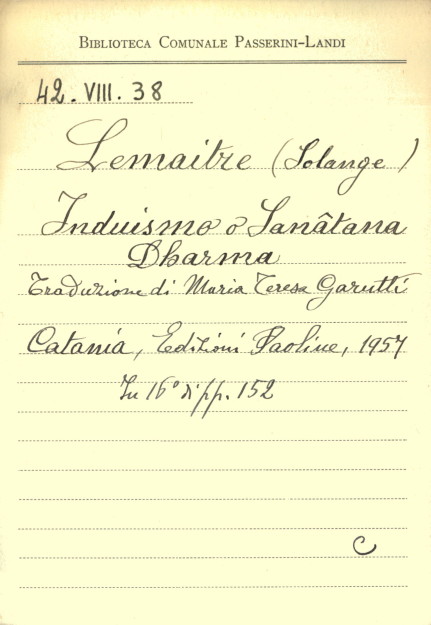 BIBLIOTECA COMUNALE PASSERINI-LANDI
42. VIII. 38
Lemaitre (Solange)
Induismo o Sanâtana
Dharma
Traduzione di Maria Teresa Garutti
Catania, Edizioni Paoline, 1957
In 16° di pp. 152
C